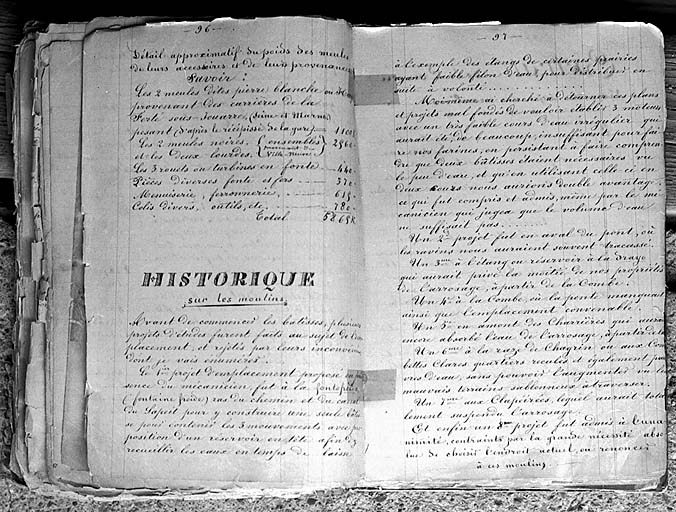 96
Détail approximatif du poids des meules
de leurs accessoires & de leurs provenances
Savoir :
Les 2 meules dites pierre blanche, ou
provenant des carrières de la
Ferté sous-Jouarre, (Seine et Marne)
pesant (d'après le récépissé de la gare) 1100
Les 2 meules noires (ensembles 2960
et les deux bourées.
Les 3 rouets ou turbines en fonte 440
Pièces diverses fonte & fers 370
Menuiserie, ferronnerie, 615
Colis divers, outils, etc. 780
Total 5865 K
HISTORIQUE
sur les moulins
Avant de commencer les bâtisses, plusieurs
projets d'étude furent faits au sujet de l'em
placement, et rejetés par leurs inconvénients
dont je vais énumérer.
Le 1er projet d'emplacement proposé en pré
sence du mécanicien, fut à la fontfreide
(fontaine froide) ras du chemin et du
du Lapeit pour y construire une seule bâtis
se pour contenir les 3 mouvements avec pro
position d'un réservoir en tête afin d'y
recueillir les eaux en temps de
97
à l'exemple des étangs de certaines prairies
ayant faible filon d'eau pour distribuer en
suite à volonté
Moi-même ai cherché à détourner ces plans
et projets mal fondés de vouloir établir 3 moteurs
avec un très faible cours d'eau irrégulier qui
aurait été de beaucoup insuffisant pour fai
re nos farines, en persistant à faire compren
dre que deux bâtisses étaient nécessaires vu
le peu d'eau, et qu'en utilisant celle ci en
deux cours nous aurions double avantage,
ce qui fut compris et admis, même par le mé
canicien qui jugea que le volume d'eau
ne suffisait pas
Un 2e projet fut en aval du pont, où
les ravins nous auraient souvent tracassé.
Un 3me à l'étang ou réservoir à la
qui aurait privé la moitié de nos propriétés
de l'arrosage, à partir de la Combe.
Un 4e à la Combe, où la pente manquait
ainsi que l'emplacement convenable.
Un 5e en amont des Charrières qui aurait
encore absorbé l'eau de l'arrosage, à partir de là
Un 6eme à la raze de Chayrin ou aux Com
bettes Clares quartiers reculés et également pau
vres d'eau, sans pouvoir l'augmenter vu les
mauvais terrains sablonneux à traverser.
Un 7eme aux Clapeirées, lequel aurait tota
lement suspendu l'arrosage.
Et enfin un 8me projet fut admis à l'una
nimité, contraints par la grande nécessité abso
lue de choisir l'endroit actuel, ou renoncer
à ces moulins.